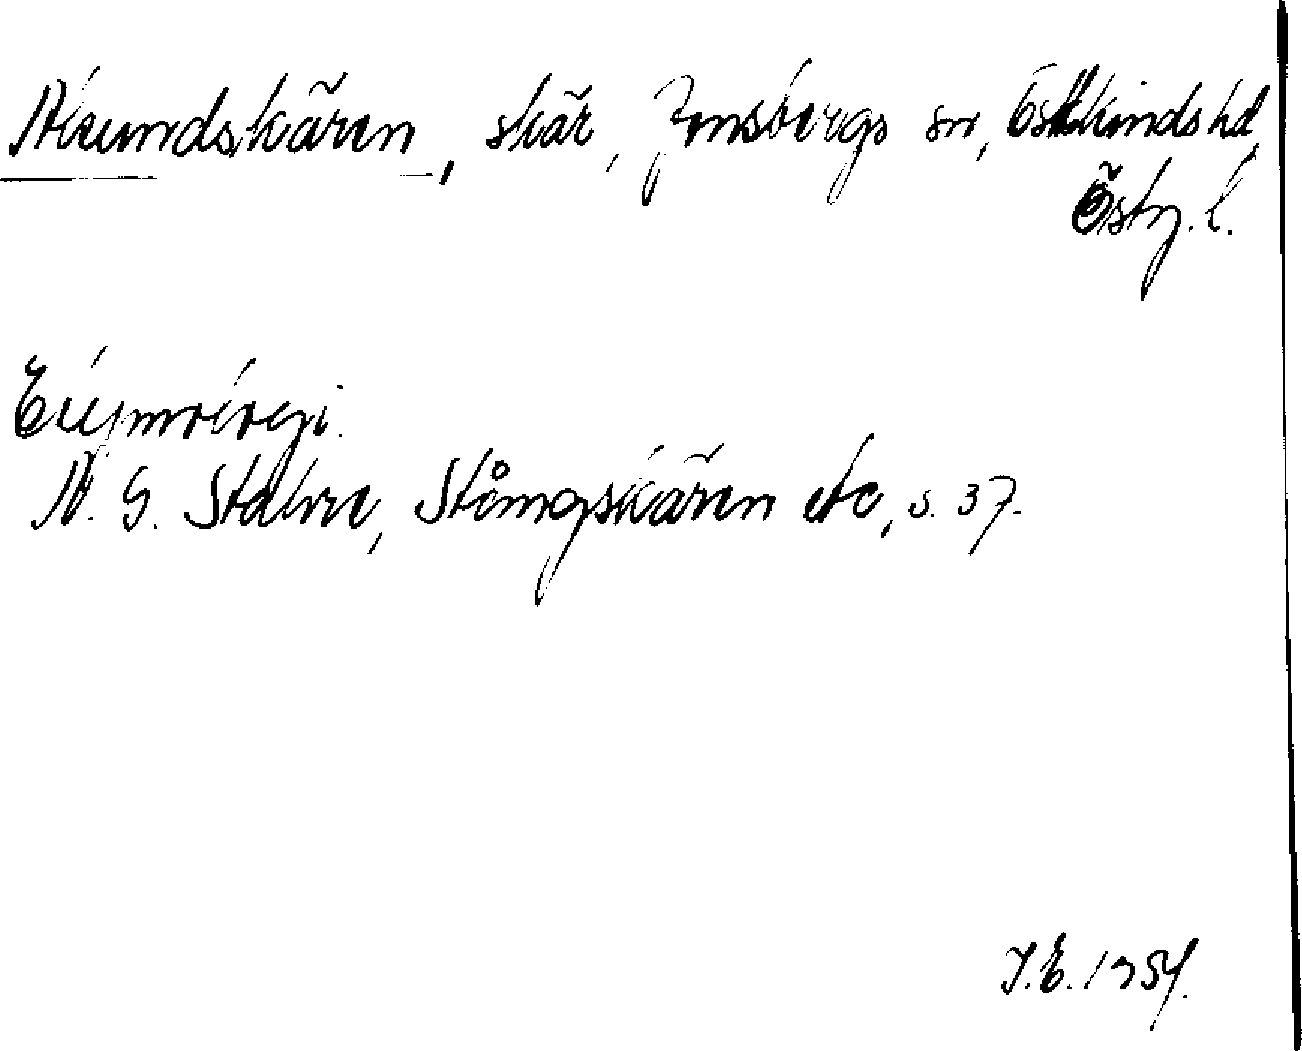 Åkundskären, skär, Jonsbergs sn, Östkinds hd,
Östg. l.
Etymologi.
N. G. Stahre, Stångskären etc, s. 37.
J.E. 1954.